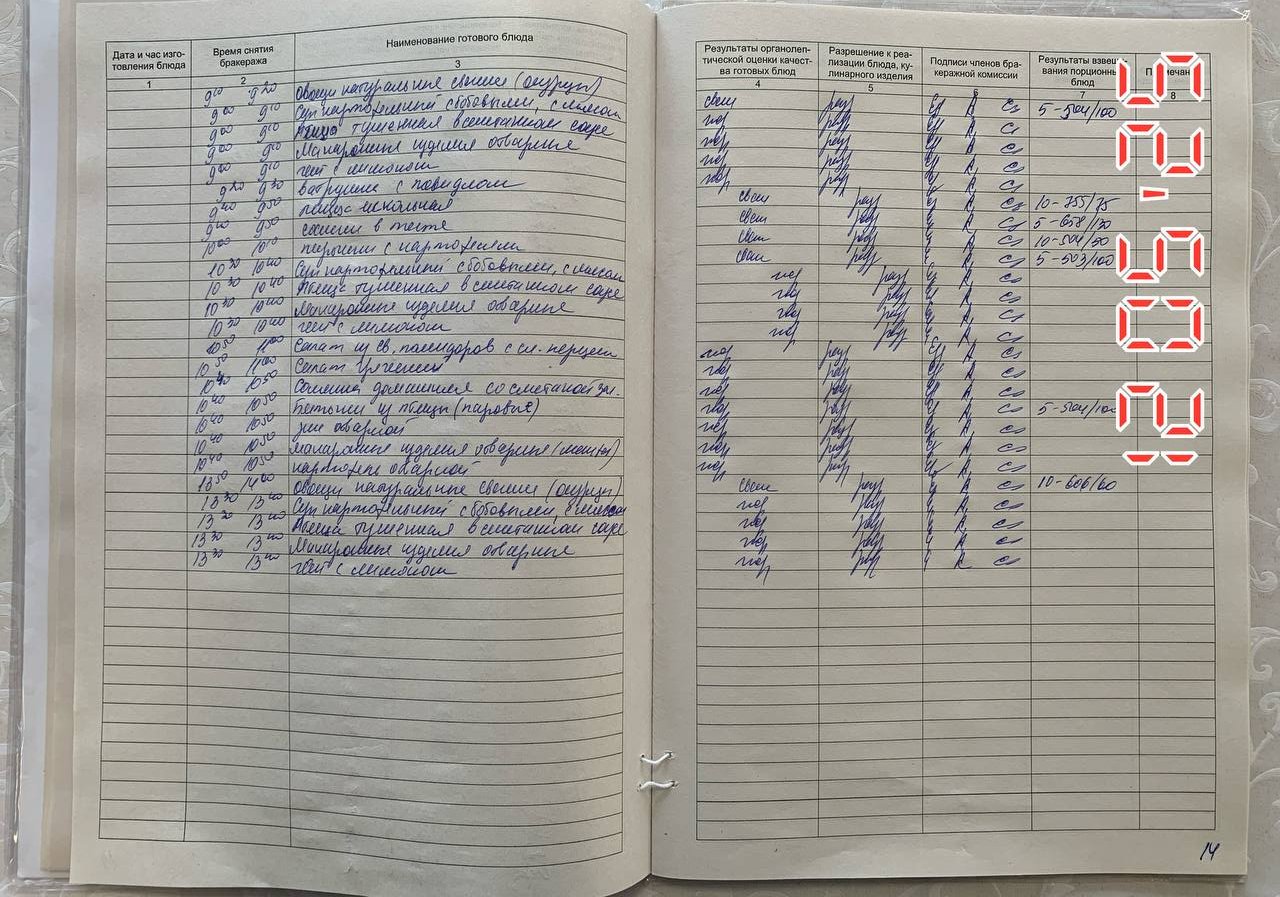 Дата и час изго-
товления блюда
Время снятия
бракеража
Наименование готового блюда
1
2
3
9⁰⁰ 9²⁰ Овощи натуральные свежие (огурцы)
9⁰⁰ 9¹⁰ Суп картофельный с бобовыми, с мясом
9⁰⁰ 9¹⁰ Птица тушенная в сметанном соусе
9⁰⁰ 9¹⁰ Макаронные изделия отварные
9⁰⁰ 9¹⁰ чай с лимоном
9²⁰ 9³⁰ ватрушка с повидлом
9⁴⁰ 9⁵⁰ пицца школьная
9⁴⁰ 9⁵⁰ сосиски в тесте
10⁰⁰ 10¹⁰ пирожки с картофелем
10³⁰ 10⁴⁰ Суп картофельный с бобовыми, с мясом
10³⁰ 10⁴⁰ Птица тушенная в сметанном соусе
10³⁰ 10⁴⁰ Макаронные изделия отварные
10³⁰ 10⁴⁰ чай с лимоном
10⁵⁰ 11⁰⁰ Салат из св. помидоров с сл. перцем
10⁵⁰ 11⁰⁰ Салат Греческий
10⁴⁰ 10⁵⁰ Солянка домашняя со сметаной
10⁴⁰ 10⁵⁰ Биточки из птицы (паровые)
10⁴⁰ 10⁵⁰ рис отварной
10⁴⁰ 10⁵⁰ макаронные изделия отварные
10⁴⁰ 10⁵⁰ картофель отварной
13⁵⁰ 14⁰⁰ Овощи натуральные свежие (огурцы)
13³⁰ 13⁴⁰ Суп картофельный с бобовыми, с мясом
13³⁰ 13⁴⁰ Птица тушенная в сметанном соусе
13³⁰ 13⁴⁰ Макаронные изделия отварные
13³⁰ 13⁴⁰ чай с лимоном
Результаты органолеп-
тической оценки качест-
ва готовых блюд
Разрешение к реа-
лизации блюда, ку-
линарного изделия
Подписи членов бра-
керажной комиссии
Результаты взвеши-
вания порционных
блюд
4
5
6
7
8
свеж разр 5-504/100
гор разр
гор разр
гор разр
гор разр
свеж разр 10-755/75
свеж разр 5-658/130
свеж разр 10-504/50
свеж разр 5-503/100
гор разр
гор разр
гор разр
гор разр
гор разр
гор разр
гор разр
гор разр 5-504/100
гор разр
гор разр
гор разр
свеж разр 10-606/60
гор разр
гор разр
гор разр
гор разр
14